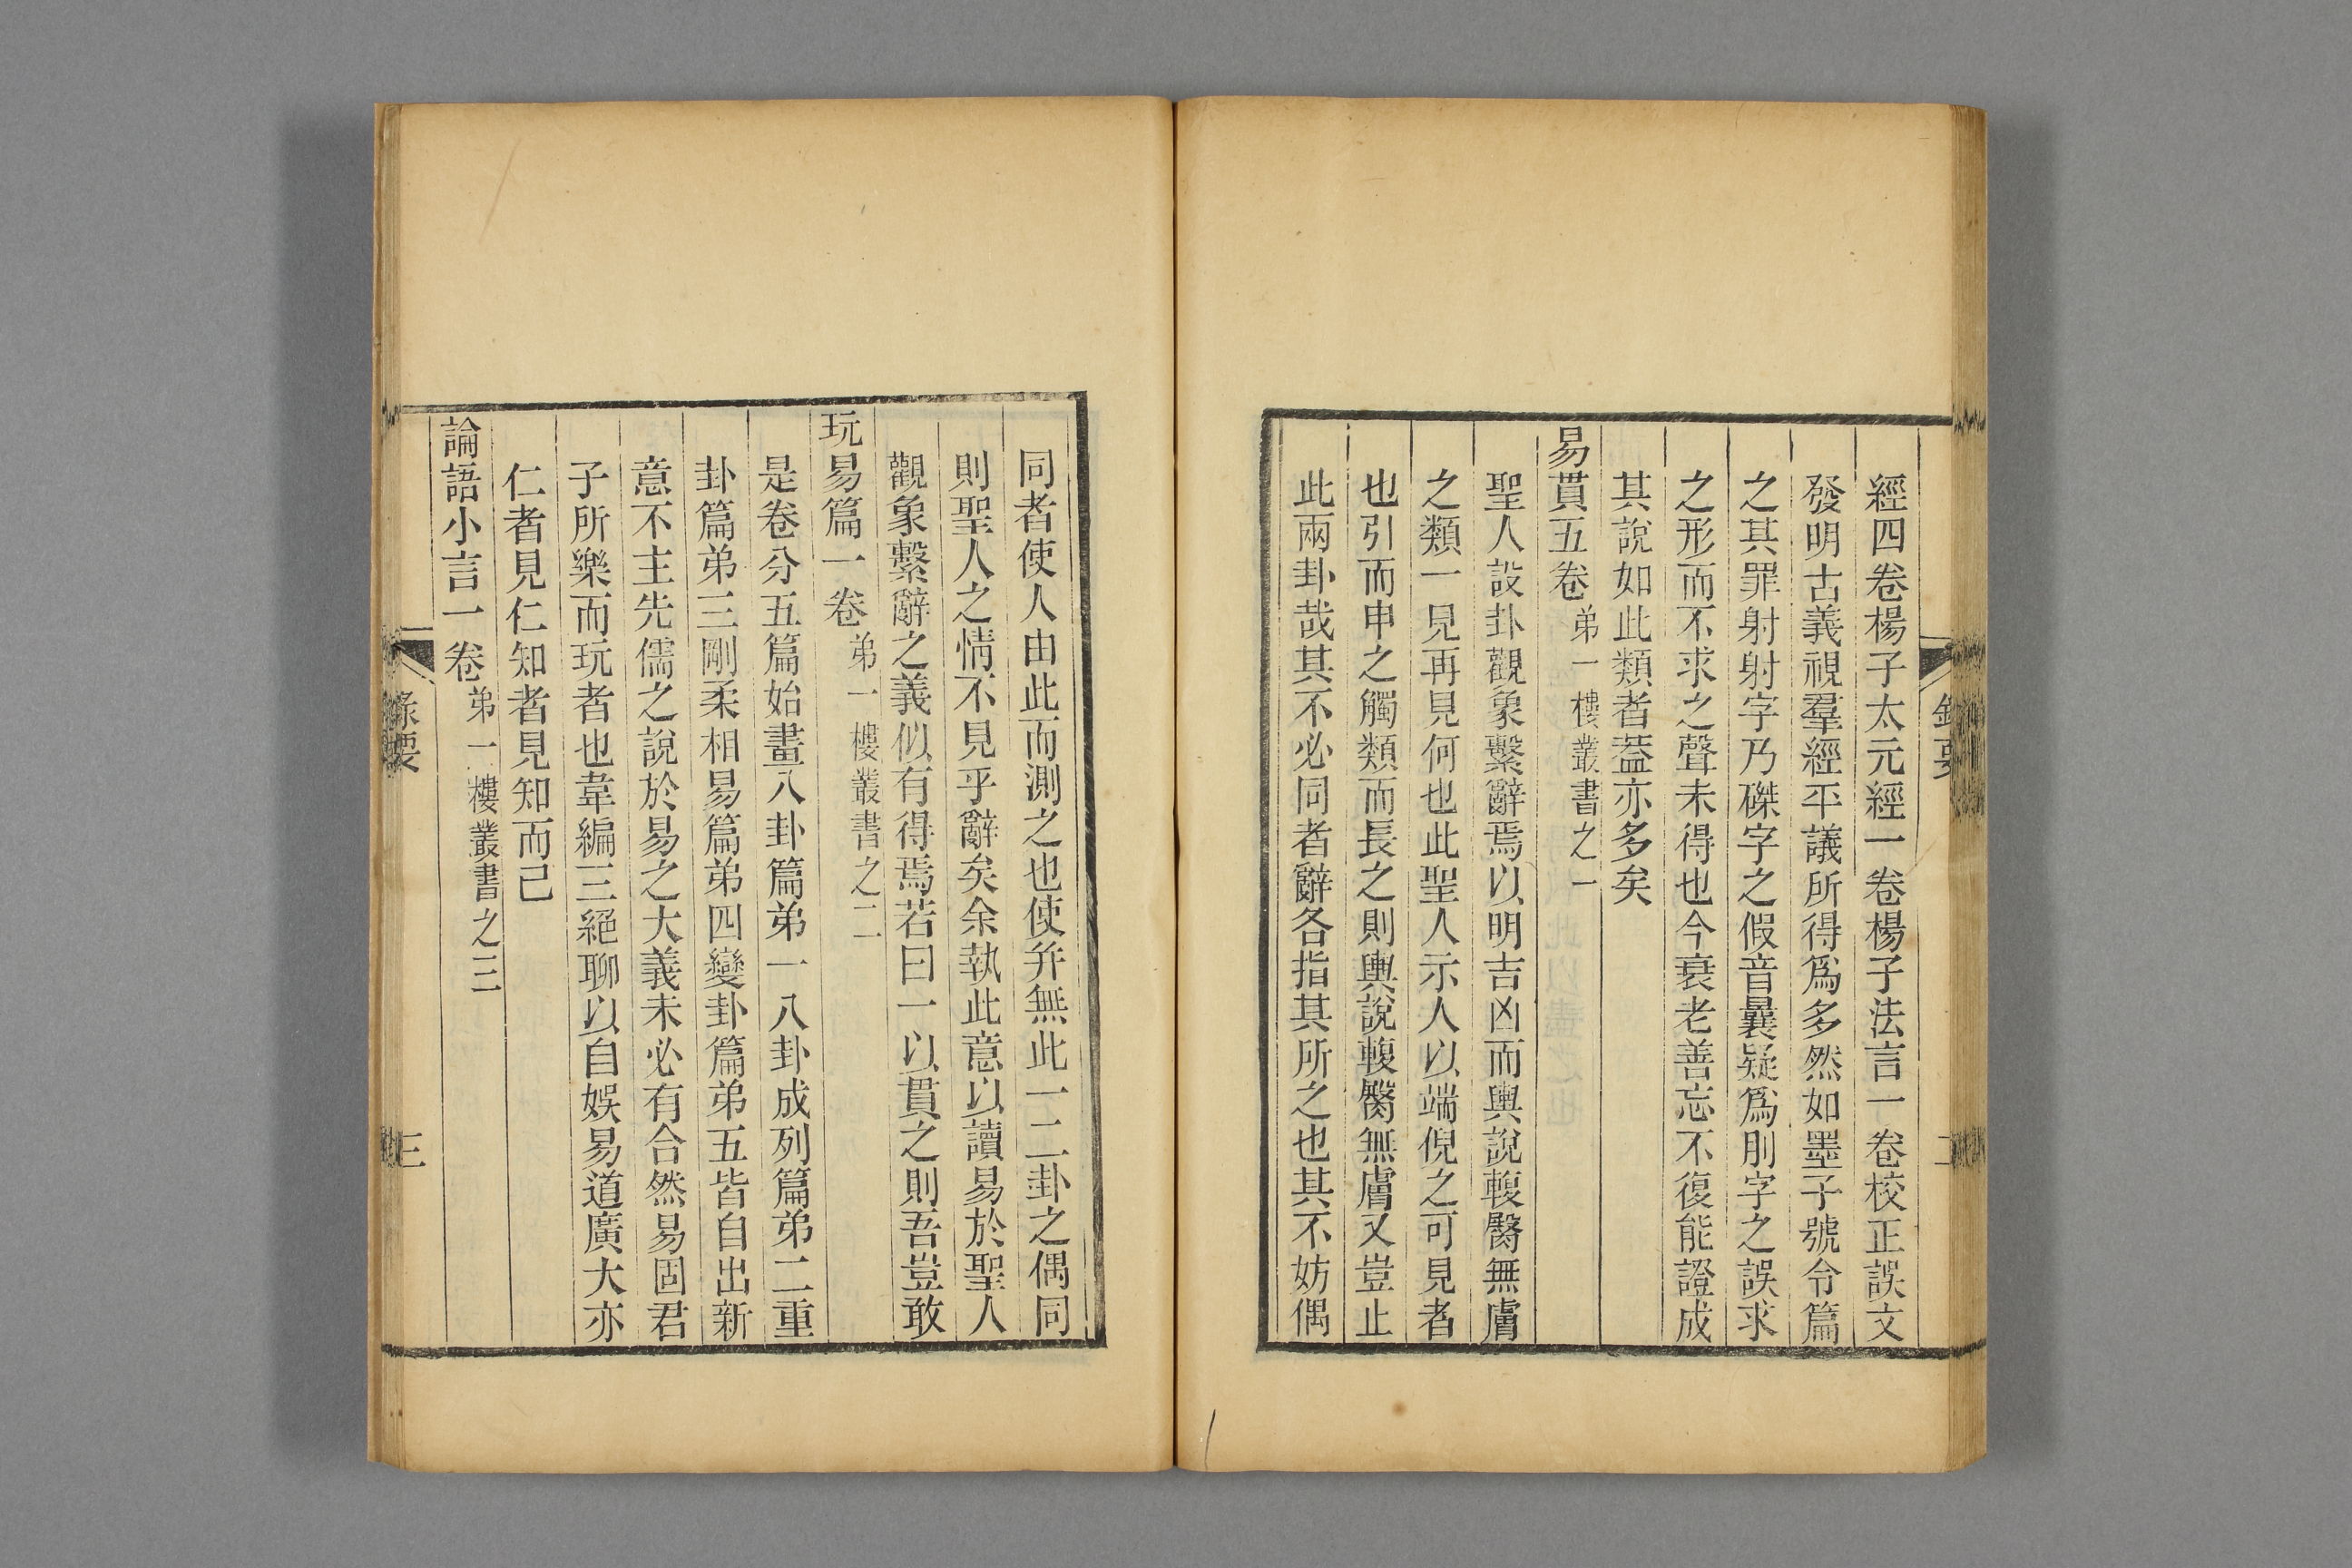 經四卷楊子太元經一卷楊子法言一卷校正誤文
發明古義視羣經平議所得爲多然如墨子號令篇
之其罪射射字乃磔字之假音曩疑爲刖字之誤求
之形而不求之聲未得也今衰老善忘不復能證成
其說如此類者葢亦多矣
易貫五卷 弟一樓叢書之一
聖人設卦觀象繫辭焉以明吉凶而輿說輹臀無膚
之類一見再見何也此聖人示人以端倪之可見者
也引而申之觸類而長之則輿說輹臀無膚又豈止
此兩卦哉其不必同者辭各指其所之也其不妨偶
同者使人由此而測之也使并無此一二卦之偶同
則聖人之情不見乎辭矣余執此意以讀易於聖人
觀象繫辭之義似有得焉若曰一以貫之則吾豈敢
玩易篇一卷 弟一樓叢書之二
是卷分五篇始畫八卦篇弟一八卦成列篇弟二重
卦篇弟三剛柔相易篇弟四變卦篇弟五皆自出新
意不主先儒之說於易之大義未必有合然易固君
子所樂而玩者也韋編三絕聊以自娛易道廣大亦
仁者見仁知者見知而已
論語小言一卷 弟一樓叢書之三
錄要
三